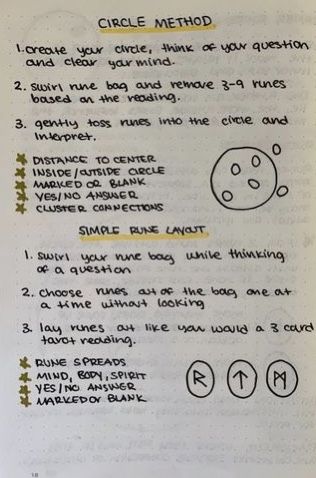 CIRCLE METHOD
1. create your circle, think of your question
and clear your mind.
2. swirl rune bag and remove 3-9 runes
based on the reading.
3. gently toss runes into the circle and
interpret.
DISTANCE TO CENTER
INSIDE/OUTSIDE CIRCLE
MARKED OR BLANK
YES/NO ANSWER
CLUSTER CONNECTIONS
SIMPLE RUNE LAYOUT
1. swirl your rune bag while thinking
of a question
2. choose runes out of the bag one at
a time without looking
3. lay runes out like you would a 3 card
tarot reading.
RUNE SPREADS
MIND, BODY, SPIRIT
YES/NO ANSWER
MARKED OR BLANK
ᚱ ↑ ᛗ